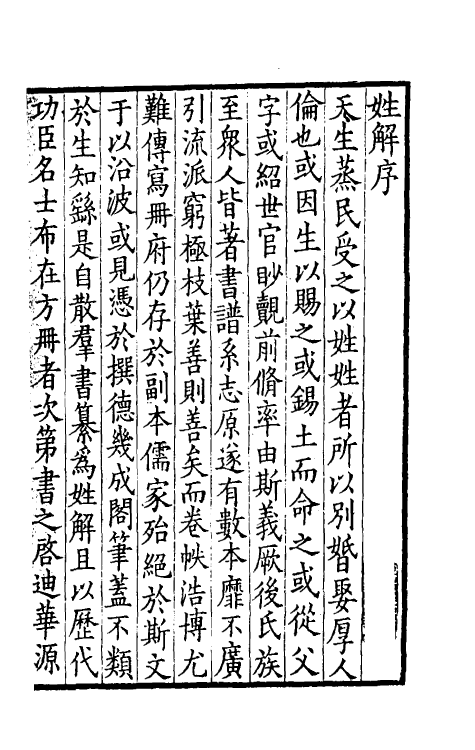 姓解序
天生蒸民受之以姓姓者所以別婚娶厚人
倫也或因生以賜之或錫土而命之或從父
字或紹世官眇覿前脩率由斯義厥後氏族
至衆人皆著書譜系志原遂有數本靡不廣
引流派窮極枝葉善則善矣而卷帙浩博尤
難傳寫冊府仍存於副本儒家殆絕於斯文
于以沿波或見憑於撰德幾成閣筆蓋不類
於生知繇是自散羣書纂爲姓解且以歷代
功臣名士布在方冊者次第書之啓迪華源